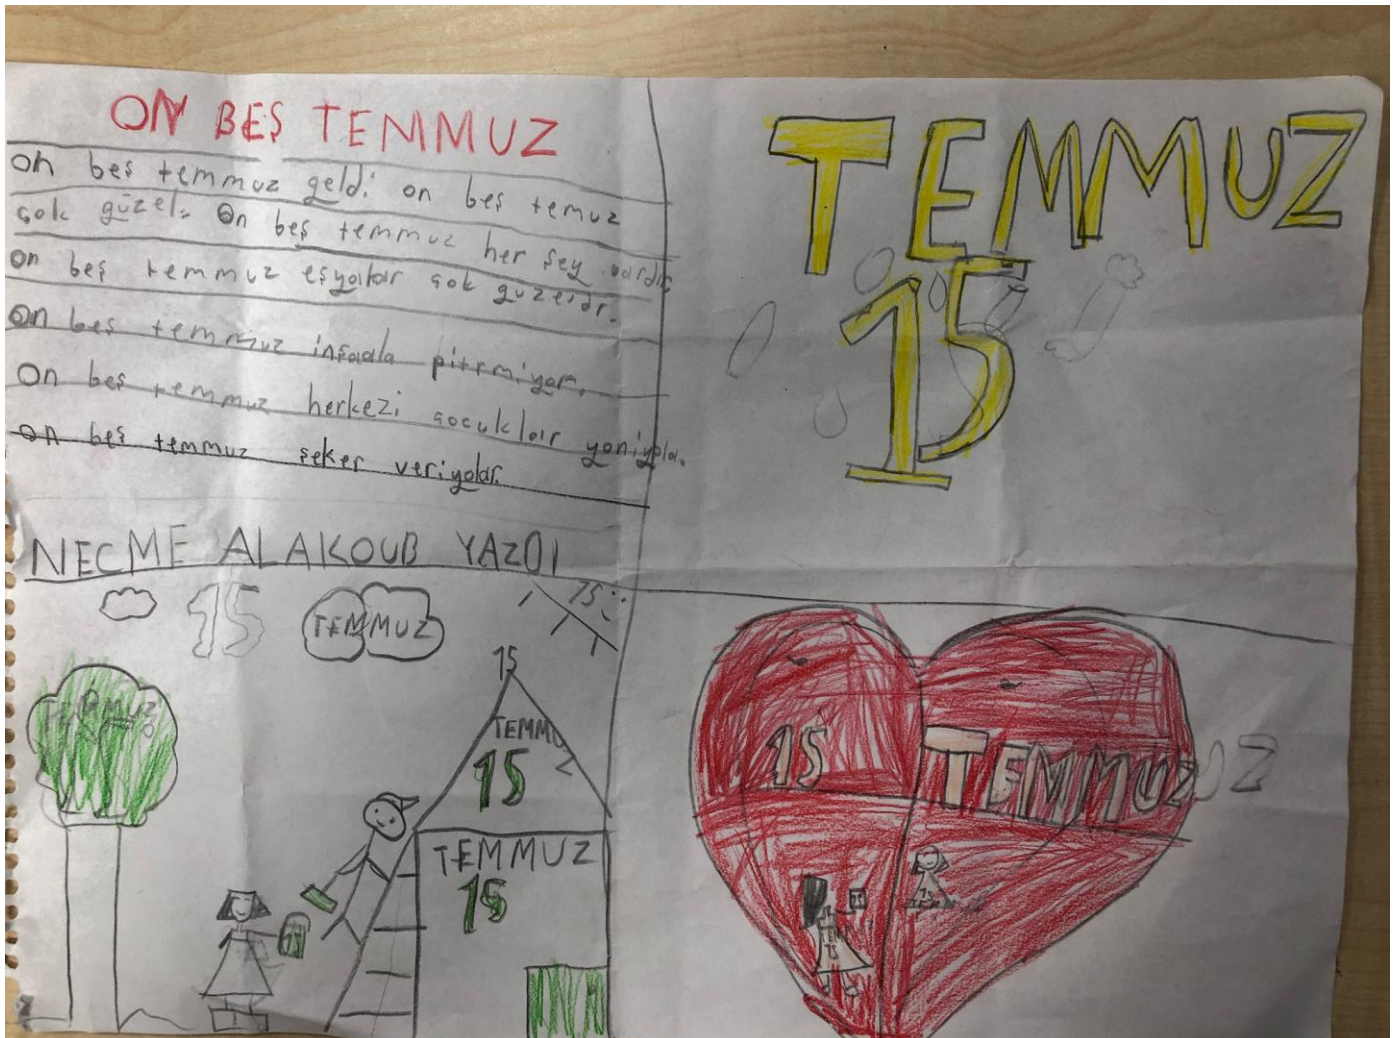 ON BEŞ TEMMUZ
on beş temmuz geldi on beş temuz
çok güzel. On beş temmuz her şey vardır
on beş temmuz eşyalar çok güzeldr.
On beş temmuz pitrmiyor.
On beş temmuz herkezi çocuklar
on beş temmuz şeker veriyolar.
NECME ALAKOUB YAZDI
TEMMUZ
15
15
TEMMUZ
15
TEMMUZ
15
TEMMUZ
15
TEMMUZ
15
15
TEMMUZ